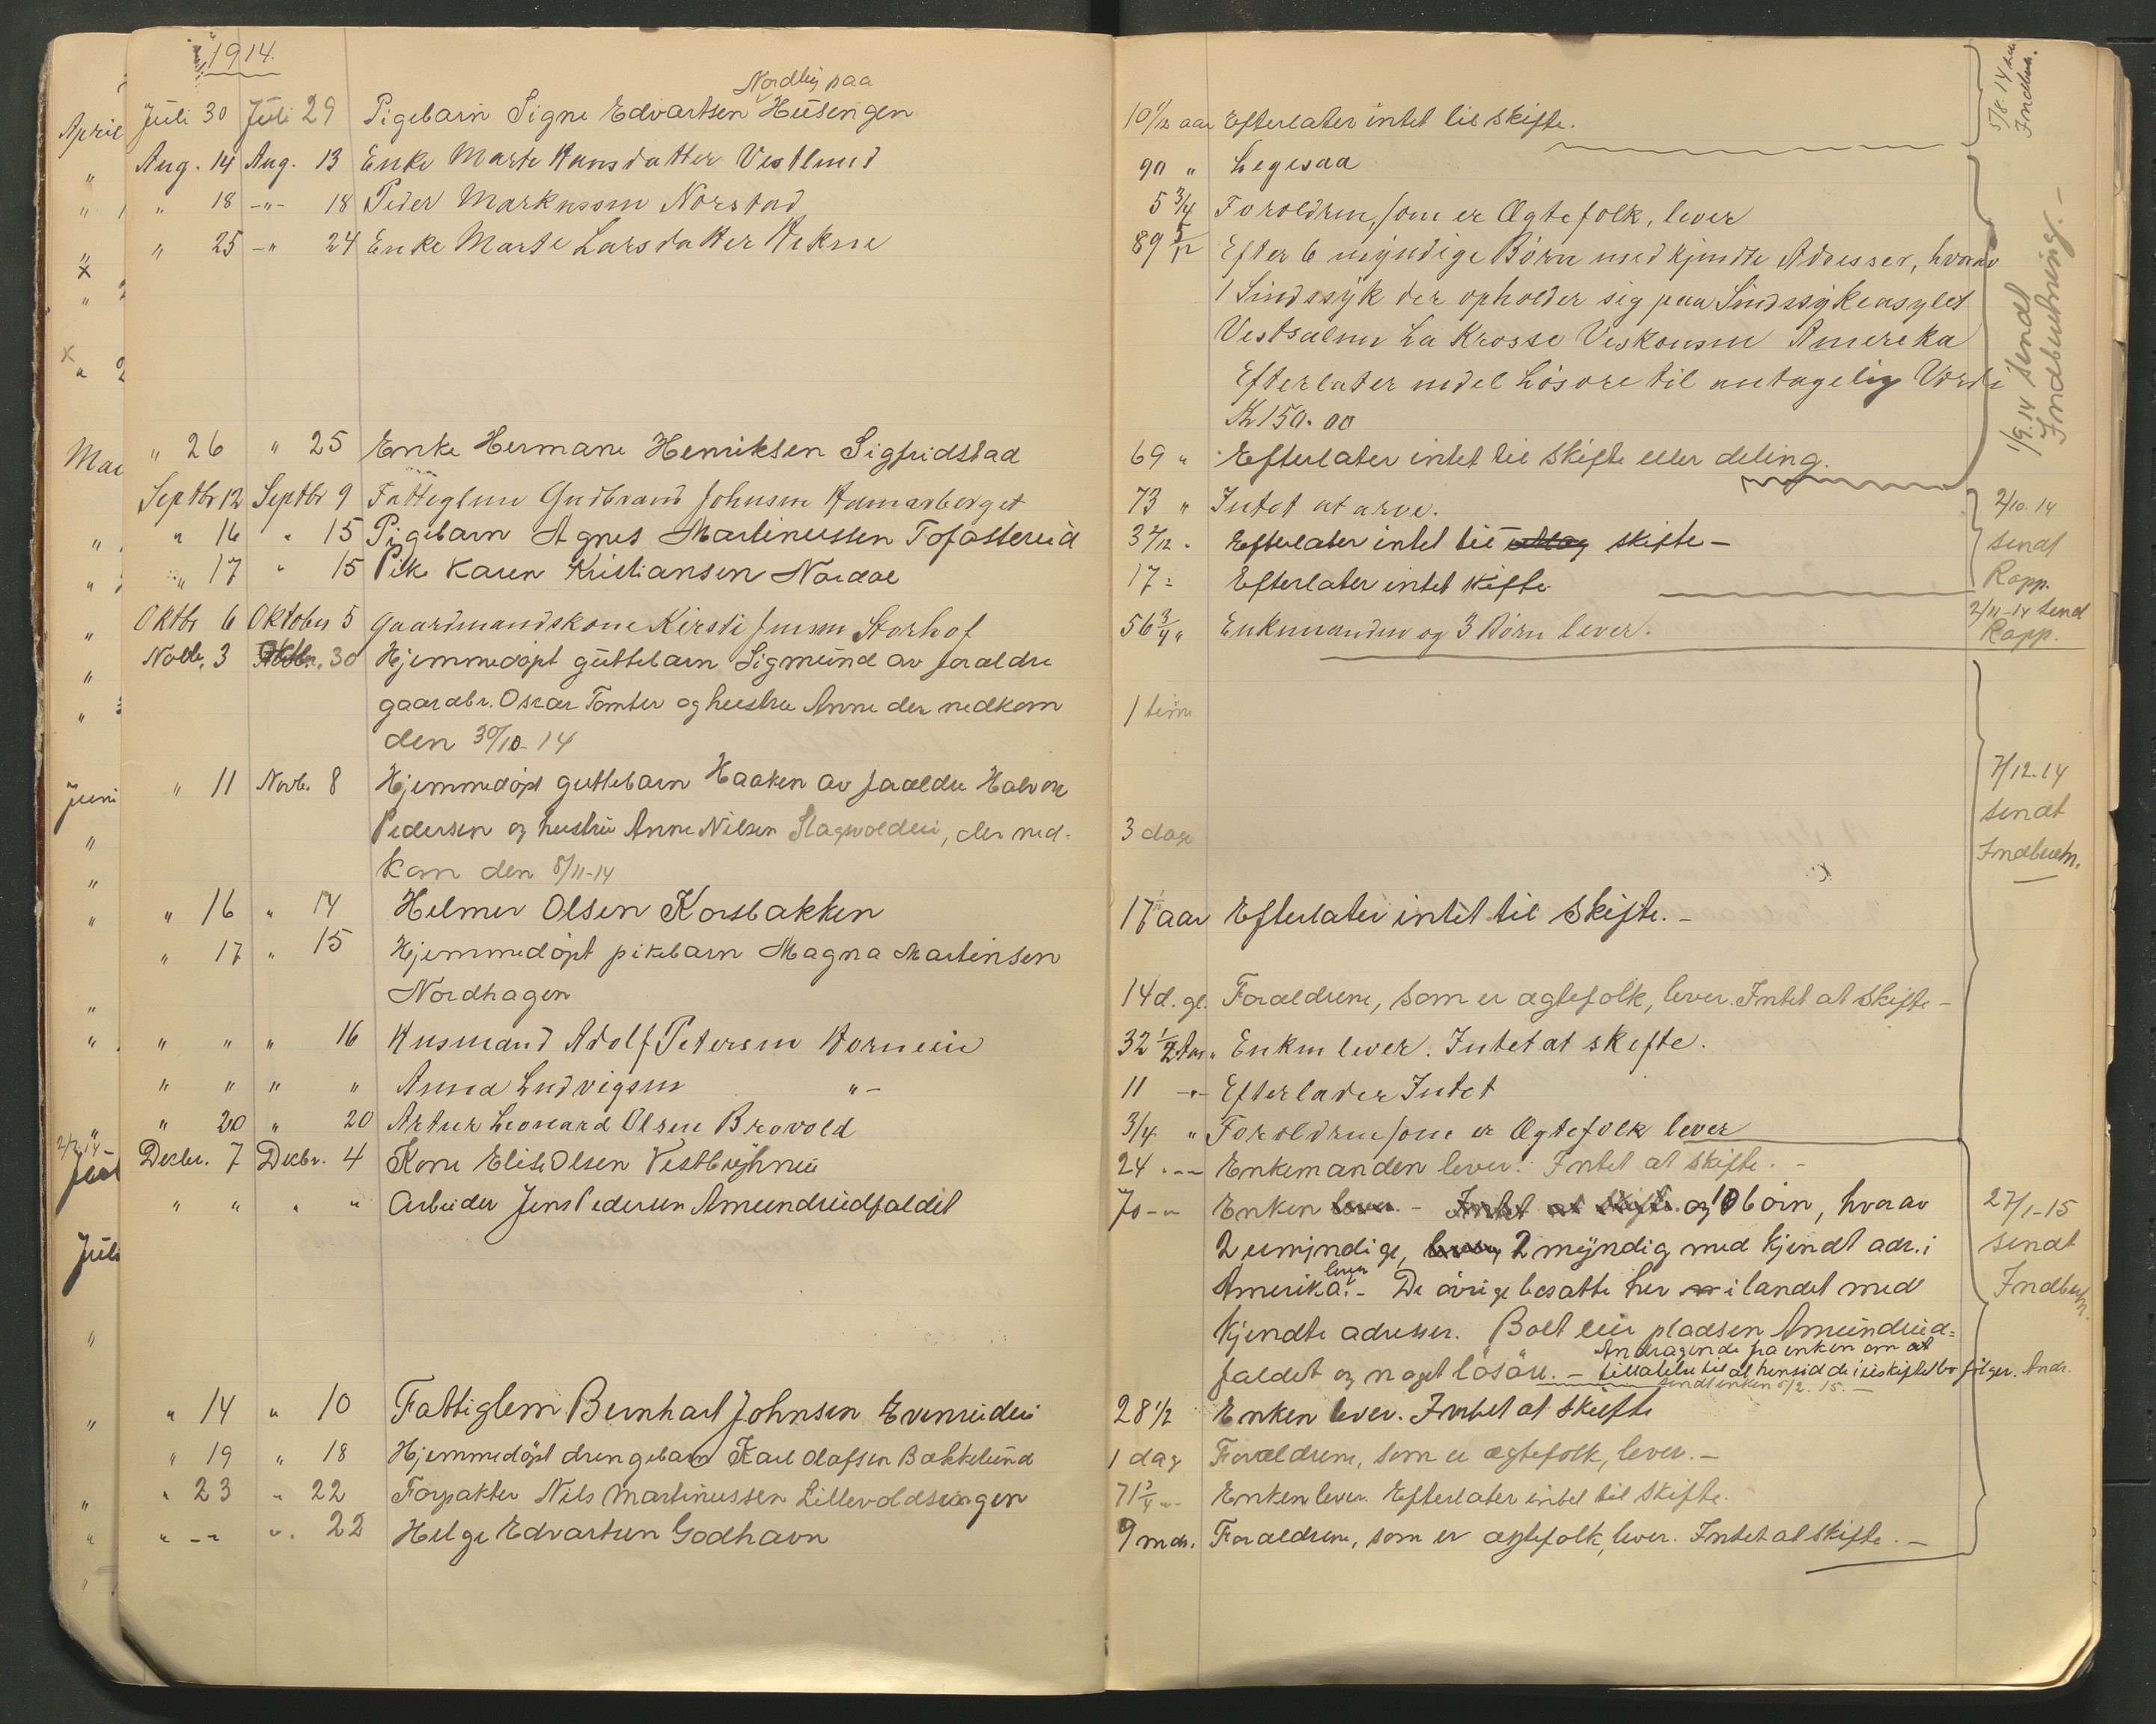 1914.
Nordby paa
Juli 30 Juli 29 Pigebarn Signe Edvartsen Heüsengen 10 1/2 aar Efterlater intet til skifte.
Aug. 14 Aug. 13 Enke Marte Hansdatter Vestlund 90 " Legesaa
" 18 -"- 18 Peder Markussen Norstad 5 3/4 Foroldren, som er Ægtefolk, lever
" 25 -" 24 Enke Marte Larsdatter Hekne 89 5/12 Efter 6 myndige Børn med kjendte Adresser, hvorav
1 Sindssyk der opholder sig paa Sindssykeasylet
Vestsalem La Krosse Viskonsin Amereka
Efterlater endel Løsøre til antagelig Værdi
Kr 150.00
" 26 " 25 Enke Hermane Henriksen Sigfridstad 69 " Efterlater intet til skifte eller deling.
Septbr 12 Septbr 9 Fatteglem Gudbrand Johnsen Hamarberget 73 " Intet at arve.
" 16 " 15 Pigebarn Agnes Martinussen Tofasterud 3 2/12 " Efterlater intet til skifte –
" 17 " 15 Pike Karen Kristiansen Nordal 17 " Efterlater intet skifte
Oktbr 6 Oktober 5 Gaardmandskone Kirsti Jensen Storhof 56 3/4 " Enkemanden og 3 Børn lever.
Novbr. 3 Oktbr. 30 Hjemmedøpt guttebarn Sigmund av foraldre
gaardbr. Oscar Tomter og hustru Anne der nedkom 1 time
den 30/10-14
" 11 Novb. 8 Hjemmedøpt guttebarn Haaken av foraldre Halvor
Pedersen og hustru Anne Nilsen Slagsvolden, der ned- 3 dage
kom den 5/11-14
" 16 " 14 Helmer Olsen Korsbakken 17 aar Efterlater intet til skifte. –
" 17 " 15 Hjemmedøpt pikebarn Magna Martinsen
Nordhagen 14 d. gl. Foraldrene, som er ægtefolk, lever. Intet at skifte –
" " " 16 Husmand Adolf Petersen Horneie 32 1/2 Aar. Enken lever. Intet at skifte.
" " " " Anna Ludvigsen "– 11 -"- Efterlader Intet
" 20 " 20 Artur Leonard Olsen Brovold 3/4 " Foroldren som er Ægtefolk lever
Decbr. 7 Decbr. 4 Kone Elise Olsen Vestbyhneie 24 " – Enkemanden lever. Intet at skifte. –
" " " " Arbeider Jens Pedersen Amundrudfaldet 70 -"- Enken lever. – Intet at skifte. og 10 børn, hvorav
2 umyndige, 2 myndig med kjendt adr. i
lever
Amerika. – De øvrige bosatte her i landet med
kjendte adresser. Bolt eie pladsen Amundrud-
Andragende fra enken om at
faldet og noget løsøre. – tillatelse til at hensidde i uskiftet bo følger. Andr.
sendt enken 5/2. 15. –
" 14 " 10 Fattiglem Bernhart Johnsen Evenrudei 28 1/2 Enken lever. Intet at skifte
" 19 " 18 Hjemmedøpt drengebarn Karl Olafsen Bakkelund 1 dag Foraldrene, som er ægtefolk, lever. –
" 23 " 22 Forpakter Nils Martinussen Lillevoldsengen 71 3/4 " – Enken lever. Efterlater intet til skifte.
" – " ". 22 Helge Edvartsen Godhavn 9 mdr. Foraldrene, som er ægtefolk, lever. Intet at skifte. –
5/8. 14
Indber.
1/9. 14 sendt
Indberetning. –
2/10. 14
sendt
Rapp.
2/11-14 send
Rapp.
7/12. 14
sendt
Indberetn.
27/1-15
sendt
Indberetn.
April
Mai
Juni
Juli